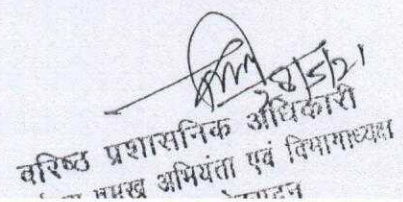 28/5/21
वरिष्ठ प्रशासनिक अधिकारी
प्रमुख अभियंता एवं विभागाध्यक्ष